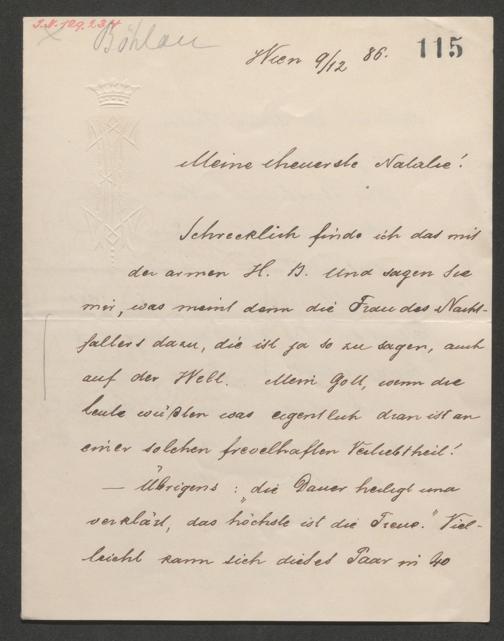 I.N. 129.234
Böhlau
Wien 9/12 86.
115
Meine theuerste Natalie!
Schrecklich finde ich das mit
der armen H. B. Und sagen Sie
mir, was meint denn die Frau des Nacht-
fallers dazu, die ist ja so zu sagen, auch
auf der Welt. Mein Gott, wenn die
Leute wüßten was eigentlich dran ist an
einer solchen frevelhaften Verliebtheit!
— Übrigens: "die Dauer heiligt und
verklärt, das höchste ist die Treue." Viel-
leicht kann sich dieses Paar in 40